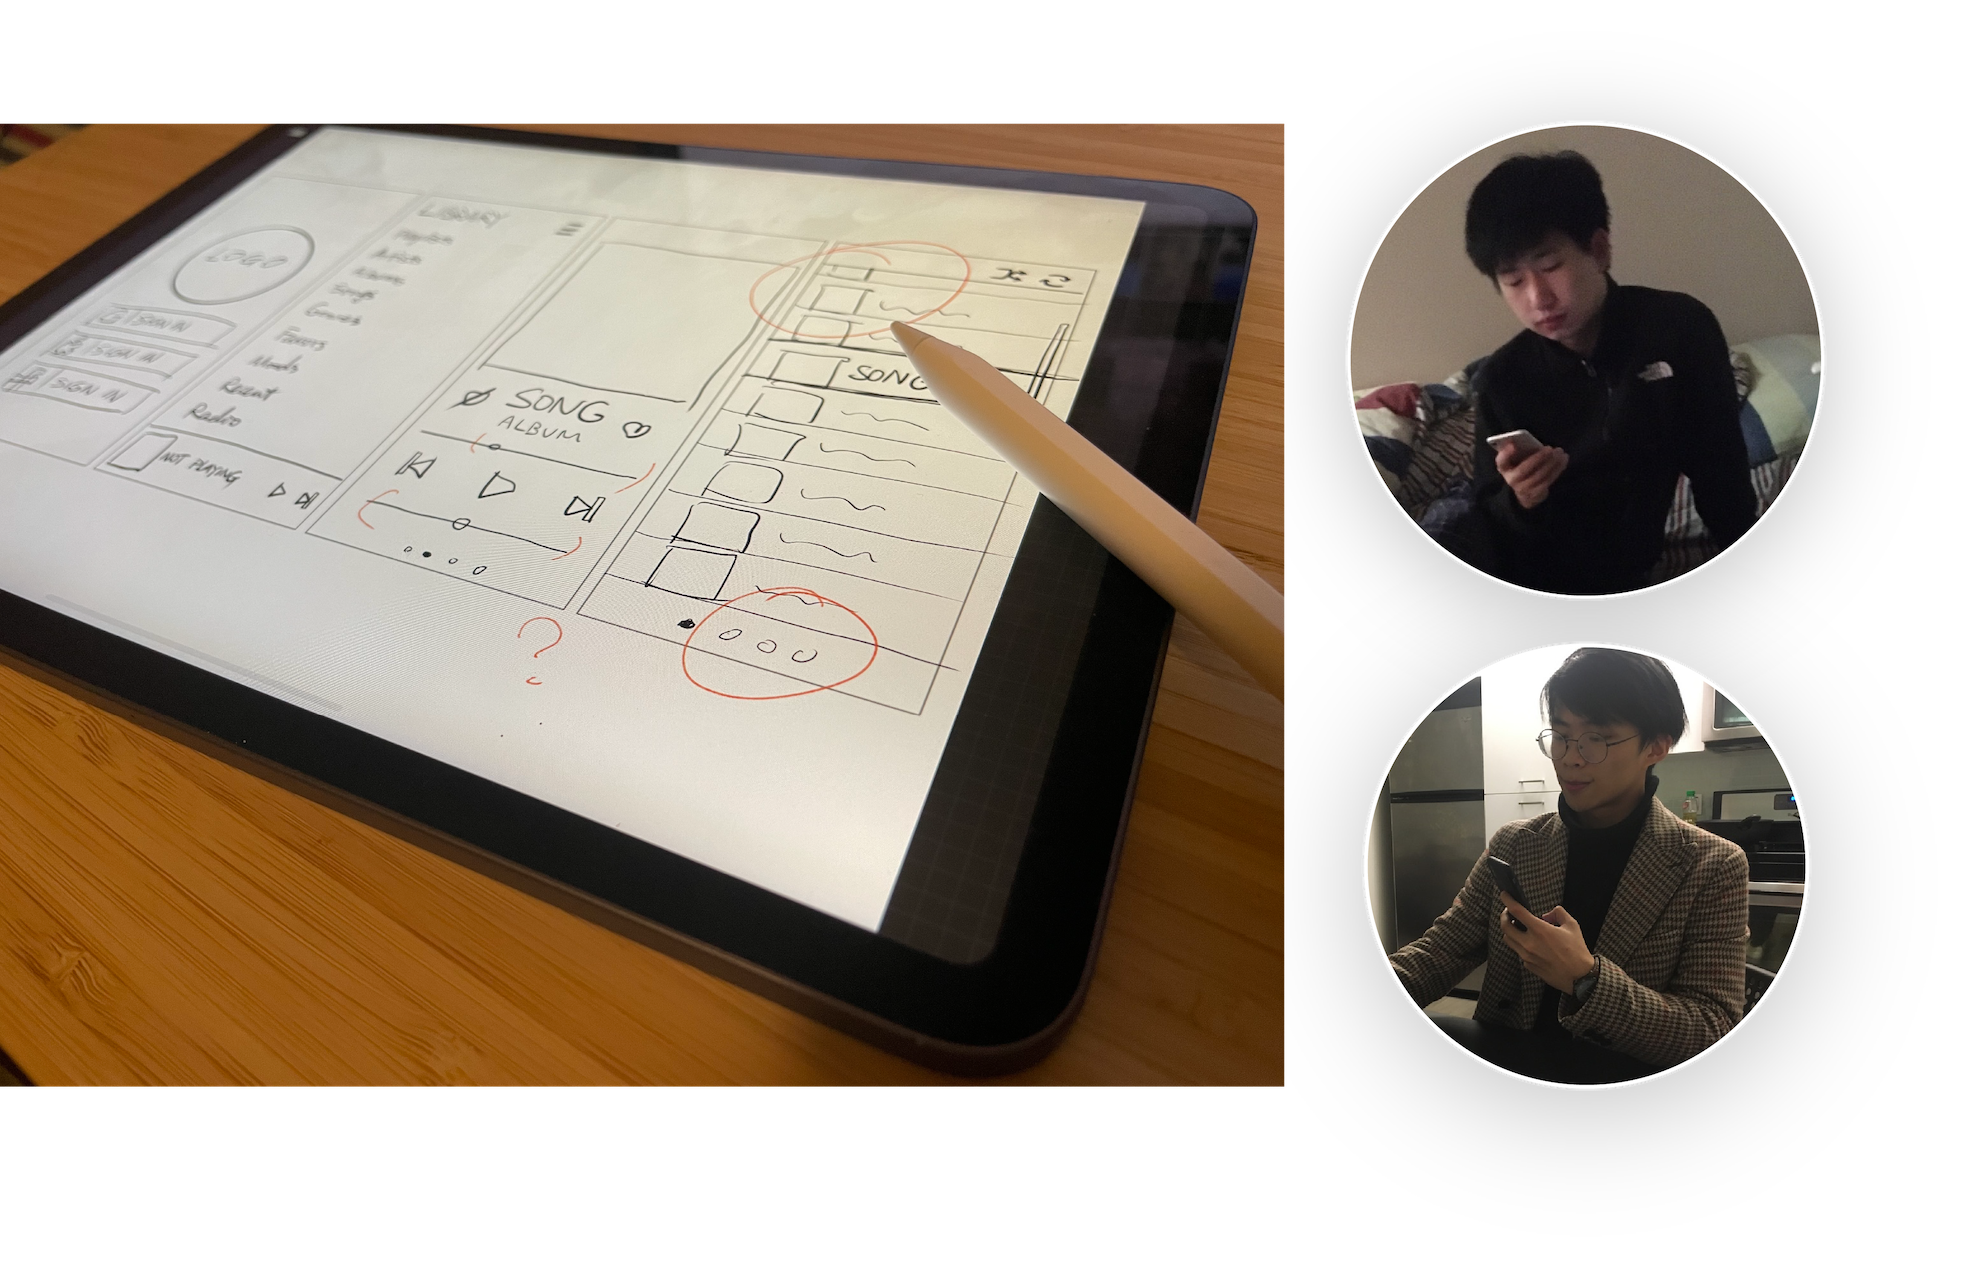 LOGO
SIGN IN
SIGN IN
SIGN IN
LIBRARY
Playlists
Artists
Albums
Songs
Genres
Favors
Moods
Recent
Radio
NOT PLAYING
SONG
ALBUM
SONG
?